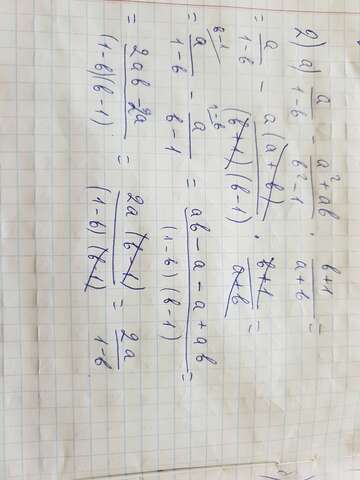 2) а) a/(1-b) - (a²+ab)/(b²-1) · (b+1)/(a+b) =
= a/(1-b) - a(a+b)/((b+1)(b-1)) · (b+1)/(a+b) =
= a/(1-b) - a/(b-1) = (ab-a-a+ab)/((1-b)(b-1)) =
= (2ab 2a)/((1-b)(b-1)) = 2a(b-1)/((1-b)(b-1)) = 2a/(1-b)